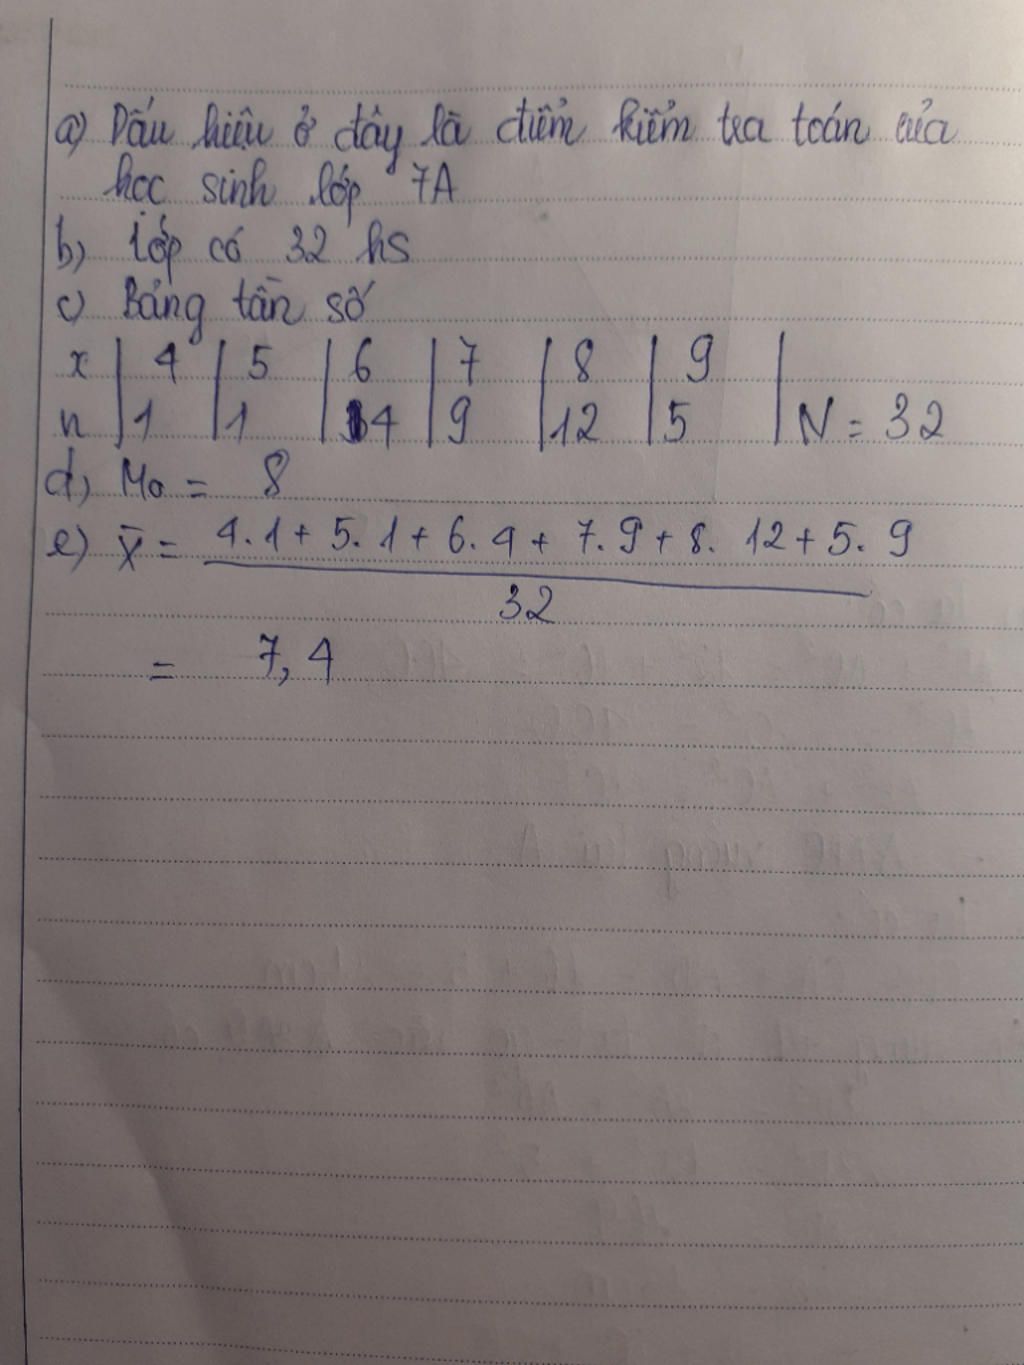 a) Dấu hiệu ở đây là điểm kiểm tra toán của
học sinh lớp 7A
b) Lớp có 32 hs
c) Bảng tần số
x | 4 | 5 | 6 | 7 | 8 | 9 |
n | 1 | 1 | 4 | 9 | 12 | 5 | N = 32
d) Mo = 8
e) X̄ = 4.1 + 5.1 + 6.4 + 7.9 + 8.12 + 5.9
32
= 7,4